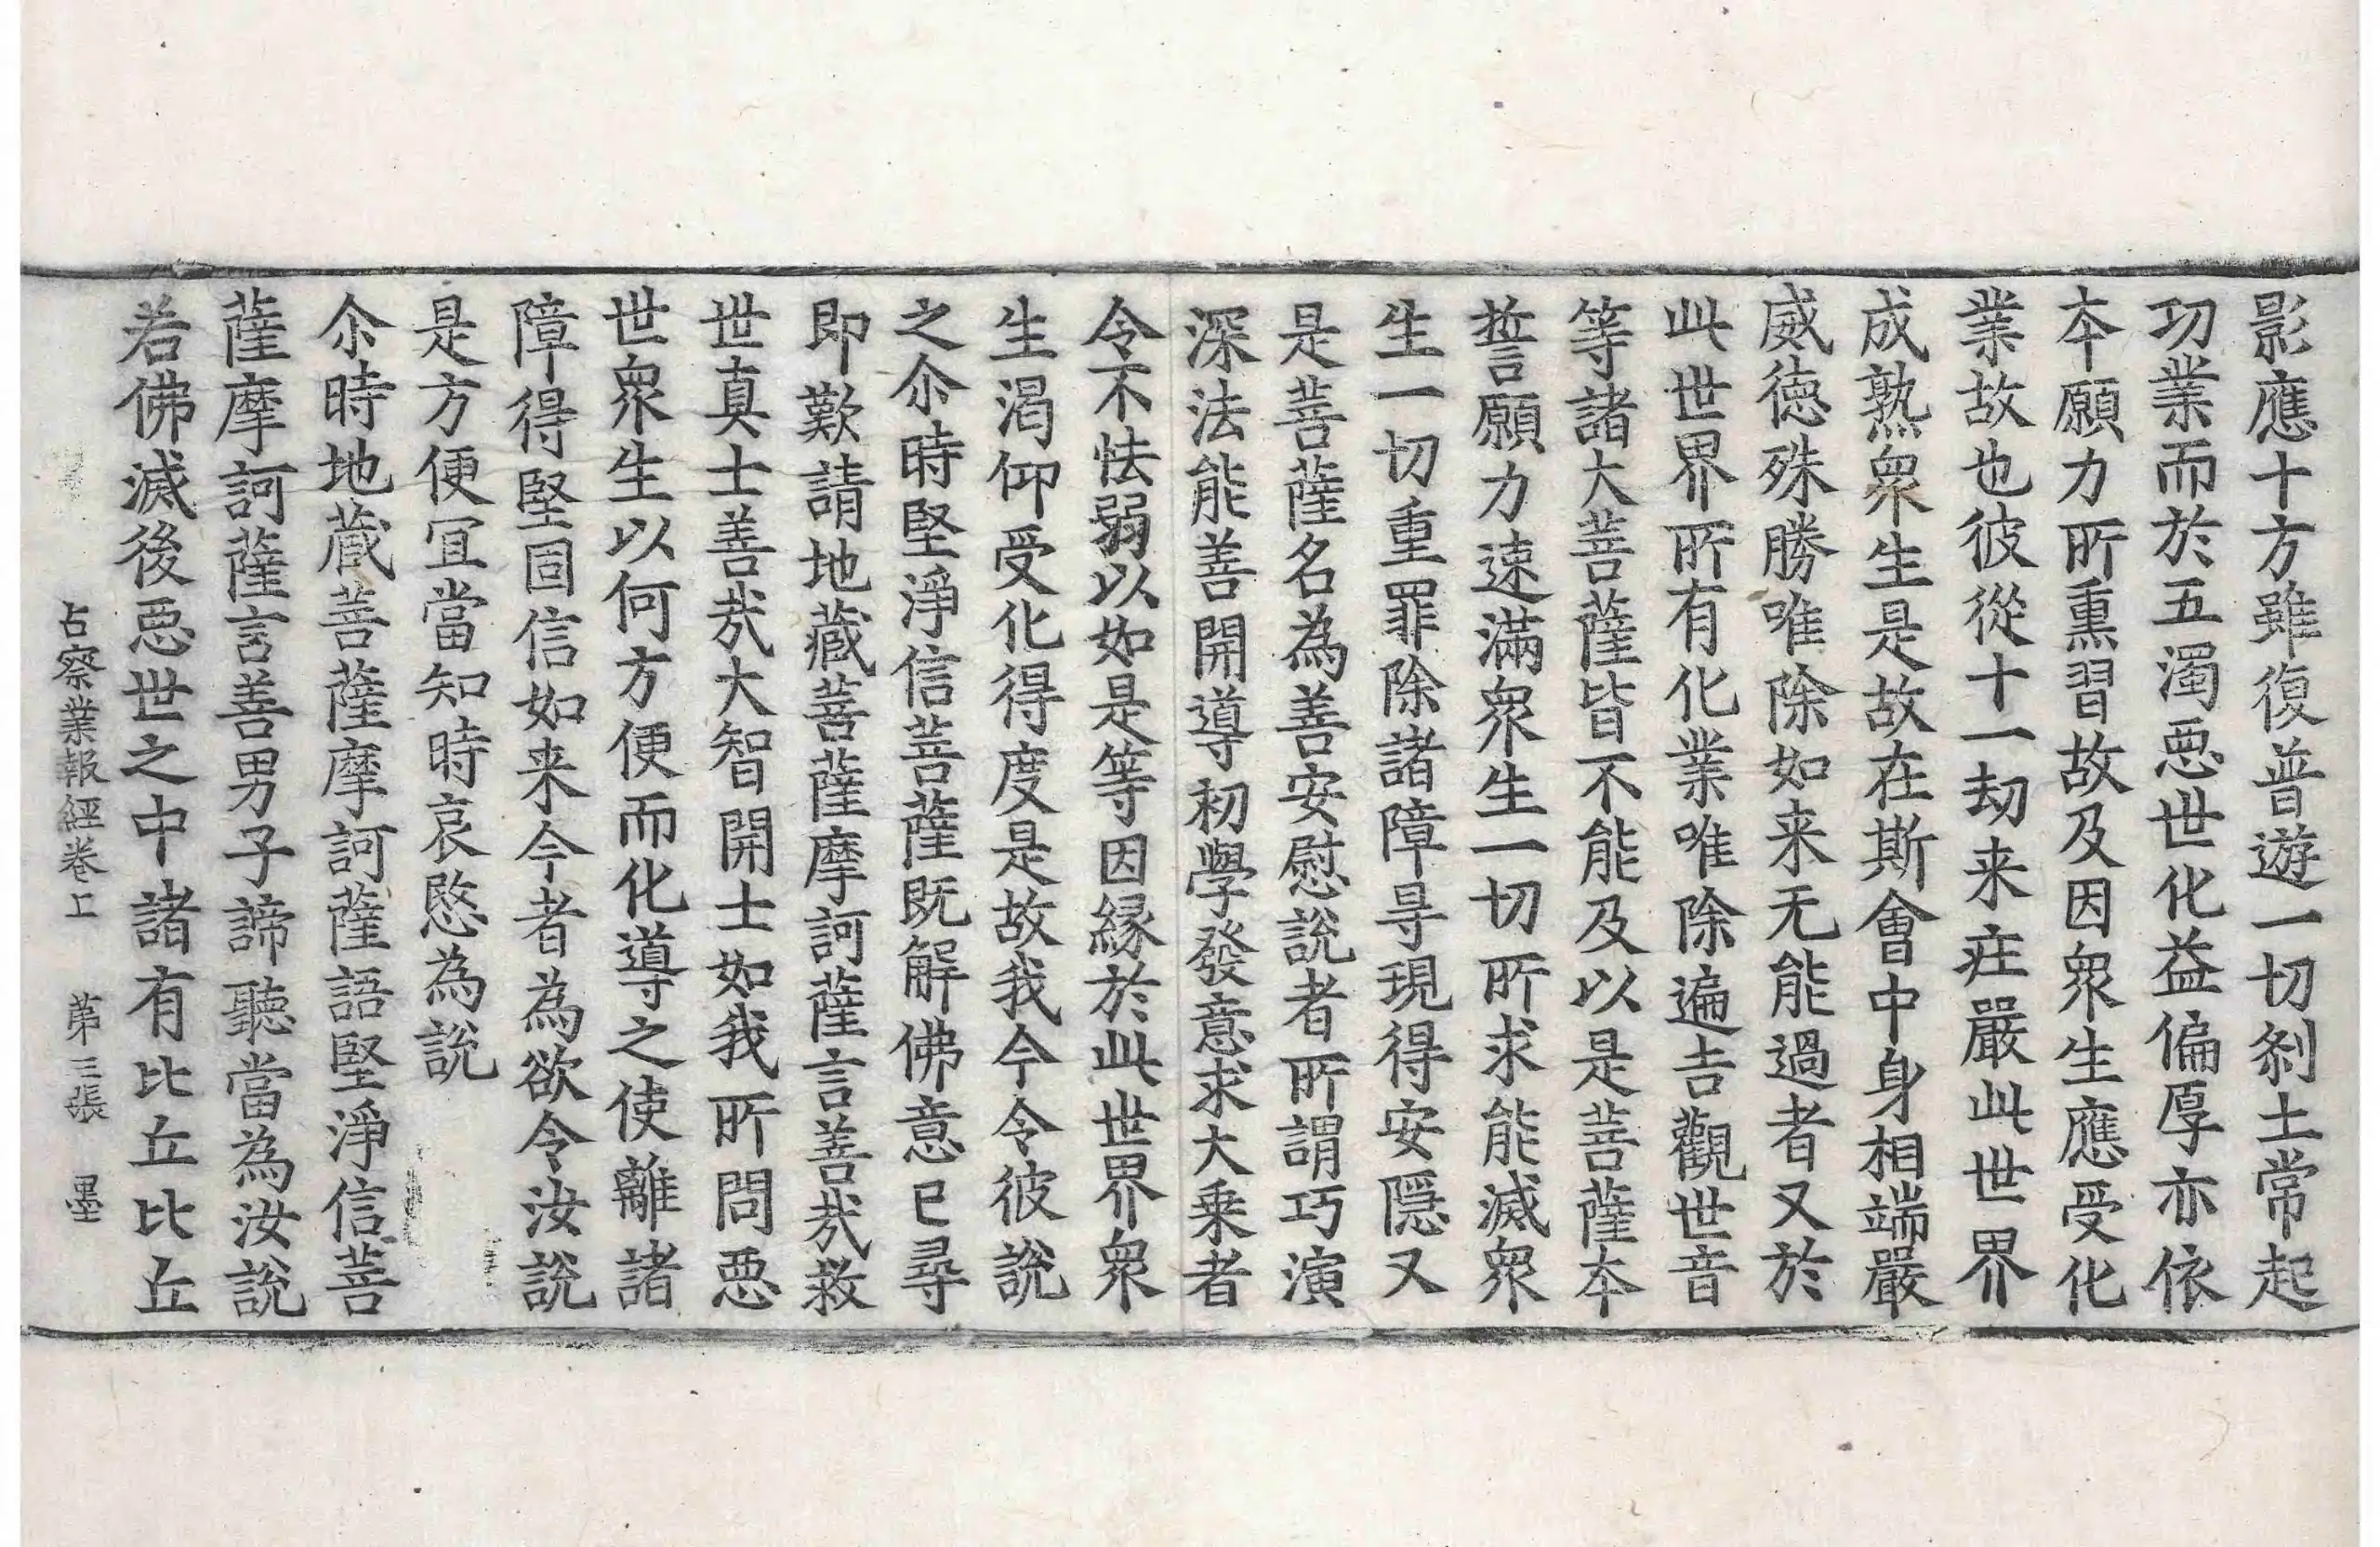 影應十方雖復普遊一切剎土常起
功業而於五濁惡世化益偏厚亦依
本願力所熏習故及因衆生應受化
業故也彼從十一劫来莊嚴此世界
成熟衆生是故在斯會中身相端嚴
威德殊勝唯除如来无能過者又於
此世界所有化業唯除遍吉觀世音
等諸大菩薩皆不能及以是菩薩本
誓願力速滿衆生一切所求能滅衆
生一切重罪除諸障㝵現得安隱又
是菩薩名為善安慰說者所謂巧演
深法能善開導初學發意求大乗者
令不怯弱以如是等因縁於此世界衆
生渴仰受化得度是故我今令彼說
之尒時堅淨信菩薩既解佛意已尋
即歎請地藏菩薩摩訶薩言善㢤救
世真士善㢤大智開士如我所問惡
世衆生以何方便而化導之使離諸
障得堅固信如来今者為欲令汝說
是方便冝當知時哀愍為說
尒時地藏菩薩摩訶薩語堅淨信菩
薩摩訶薩言善男子諦聽當為汝說
若佛滅後惡世之中諸有比丘比丘
占察業報經卷上　第三張　墨